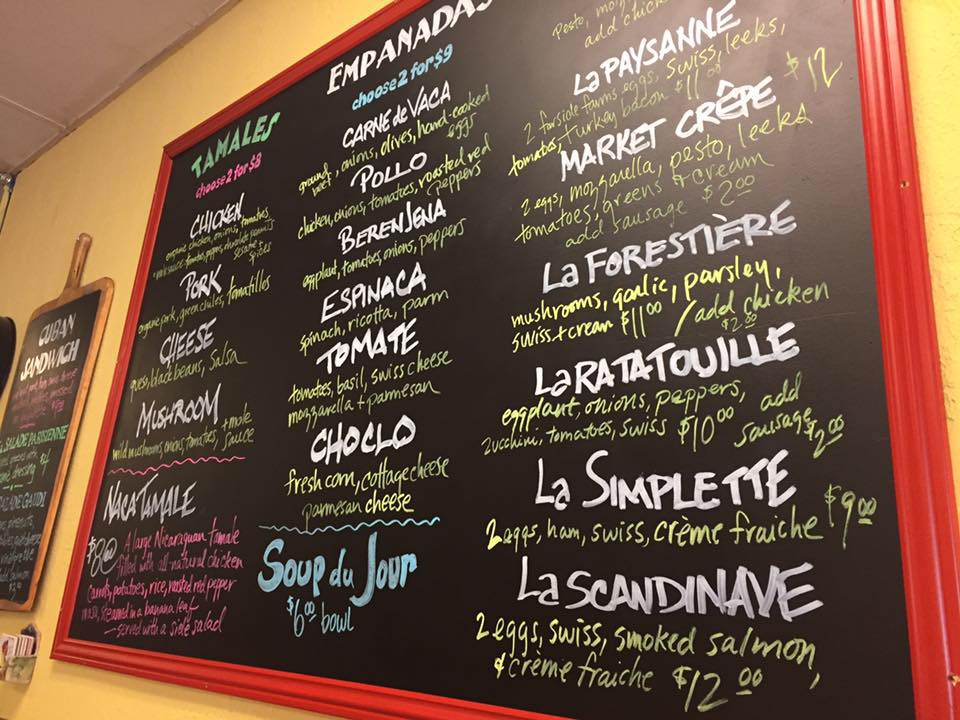 CUBAN
SANDWICH
SALADE PARISIENNE
TAMALES
choose 2 for $8
CHICKEN
organic chicken, onions, tomatoes
PORK
organic pork, green chiles, tomatillos
CHEESE
queso, black beans, salsa
MUSHROOM
wild mushrooms, onions, tomatoes, + mole
sauce
NACATAMALE
$8@ A large Nicaraguan Tamale
filled with all-natural chicken
carrots, potatoes, rice, roasted red pepper
masa, steamed in a banana leaf
served with a side salad
EMPANADAS
choose 2 for $9
CARNE de VACA
ground beef, onions, olives, hard-cooked
eggs
POLLO
chicken, onions, tomatoes, roasted red
peppers
BERENJENA
eggplant, tomatoes, onions, peppers
ESPINACA
spinach, ricotta, parm
TOMATE
tomatoes, basil, swiss cheese
mozzarella + parmesan
CHOCLO
fresh corn, cottage cheese
parmesan cheese
Soup du Jour
$6.00 bowl
pesto,
add chicken
La PAYSANNE
2 farside farms eggs, swiss, leeks,
tomatoes, turkey bacon $11.00
MARKET CRÊPE $12
2 eggs, mozzarella, pesto, leeks
tomatoes, greens & cream
add sausage $2.00
La FORESTIÈRE
mushrooms, garlic, parsley,
swiss + cream $11.00 / add chicken
$2.00
La RATATOUILLE
eggplant, onions, peppers,
zucchini, tomatoes, swiss $10.00 add sausage $2.00
La SIMPLETTE
2 eggs, ham, swiss, crème fraiche $9.00
La SCANDINAVE
2 eggs, swiss, smoked salmon,
& crème fraiche $12.00